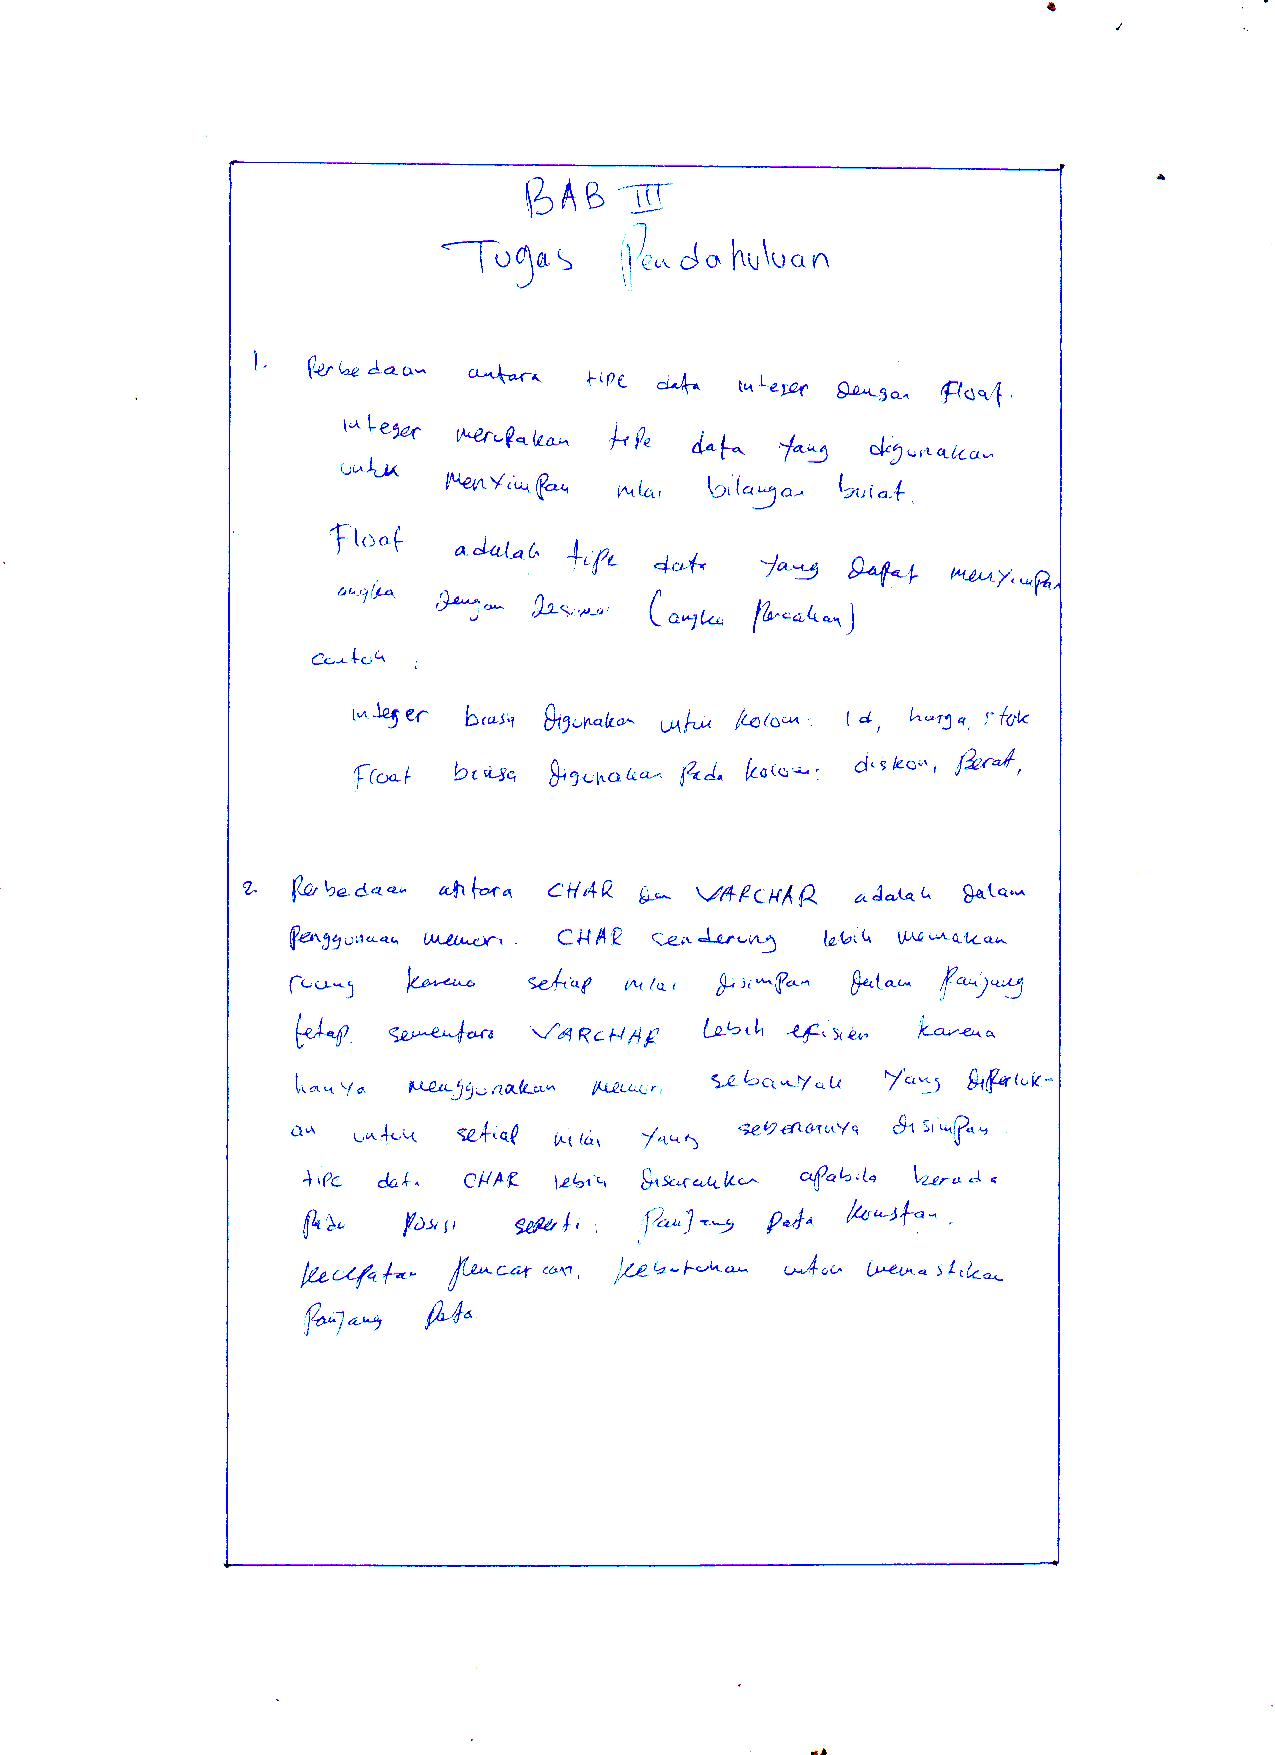 BAB III
Tugas Pendahuluan
1. Perbedaan antara tipe data integer dengan Float.
integer merupakan tipe data yang digunakan
untuk menyimpan nilai bilangan bulat.
Float adalah tipe data yang dapat menyimpan
angka dengan desimal (angka pecahan)
contoh :
integer biasa digunakan untuk kolom: id, harga, stok
Float biasa digunakan pada kolom: diskon, Berat,
2. Perbedaan antara CHAR dan VARCHAR adalah dalam
penggunaan memori. CHAR cenderung lebih memakan
ruang karena setiap nilai disimpan dalam panjang
tetap. sementara VARCHAR lebih efisien karena
hanya menggunakan memori sebanyak yang diperluk-
an untuk setiap nilai yang sebenarnya disimpan
tipe data CHAR lebih disarankan apabila berada
pada posisi seperti: panjang data konstan.
kecepatan pencarian, kebutuhan untuk memastikan
panjang data